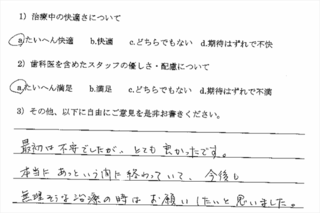 1）治療中の快適さについて
a.たいへん快適　b.快適　c.どちらでもない　d.期待はずれで不快
2）歯科医を含めたスタッフの優しさ・配慮について
a.たいへん満足　b.満足　c.どちらでもない　d.期待はずれで不満
3）その他、以下に自由にご意見を是非お書きください。
最初は不安でしたが、とても良かったです。
本当にあっという間に終わっていて、今後も
無理そうな治療の時はお願いしたいと思いました。